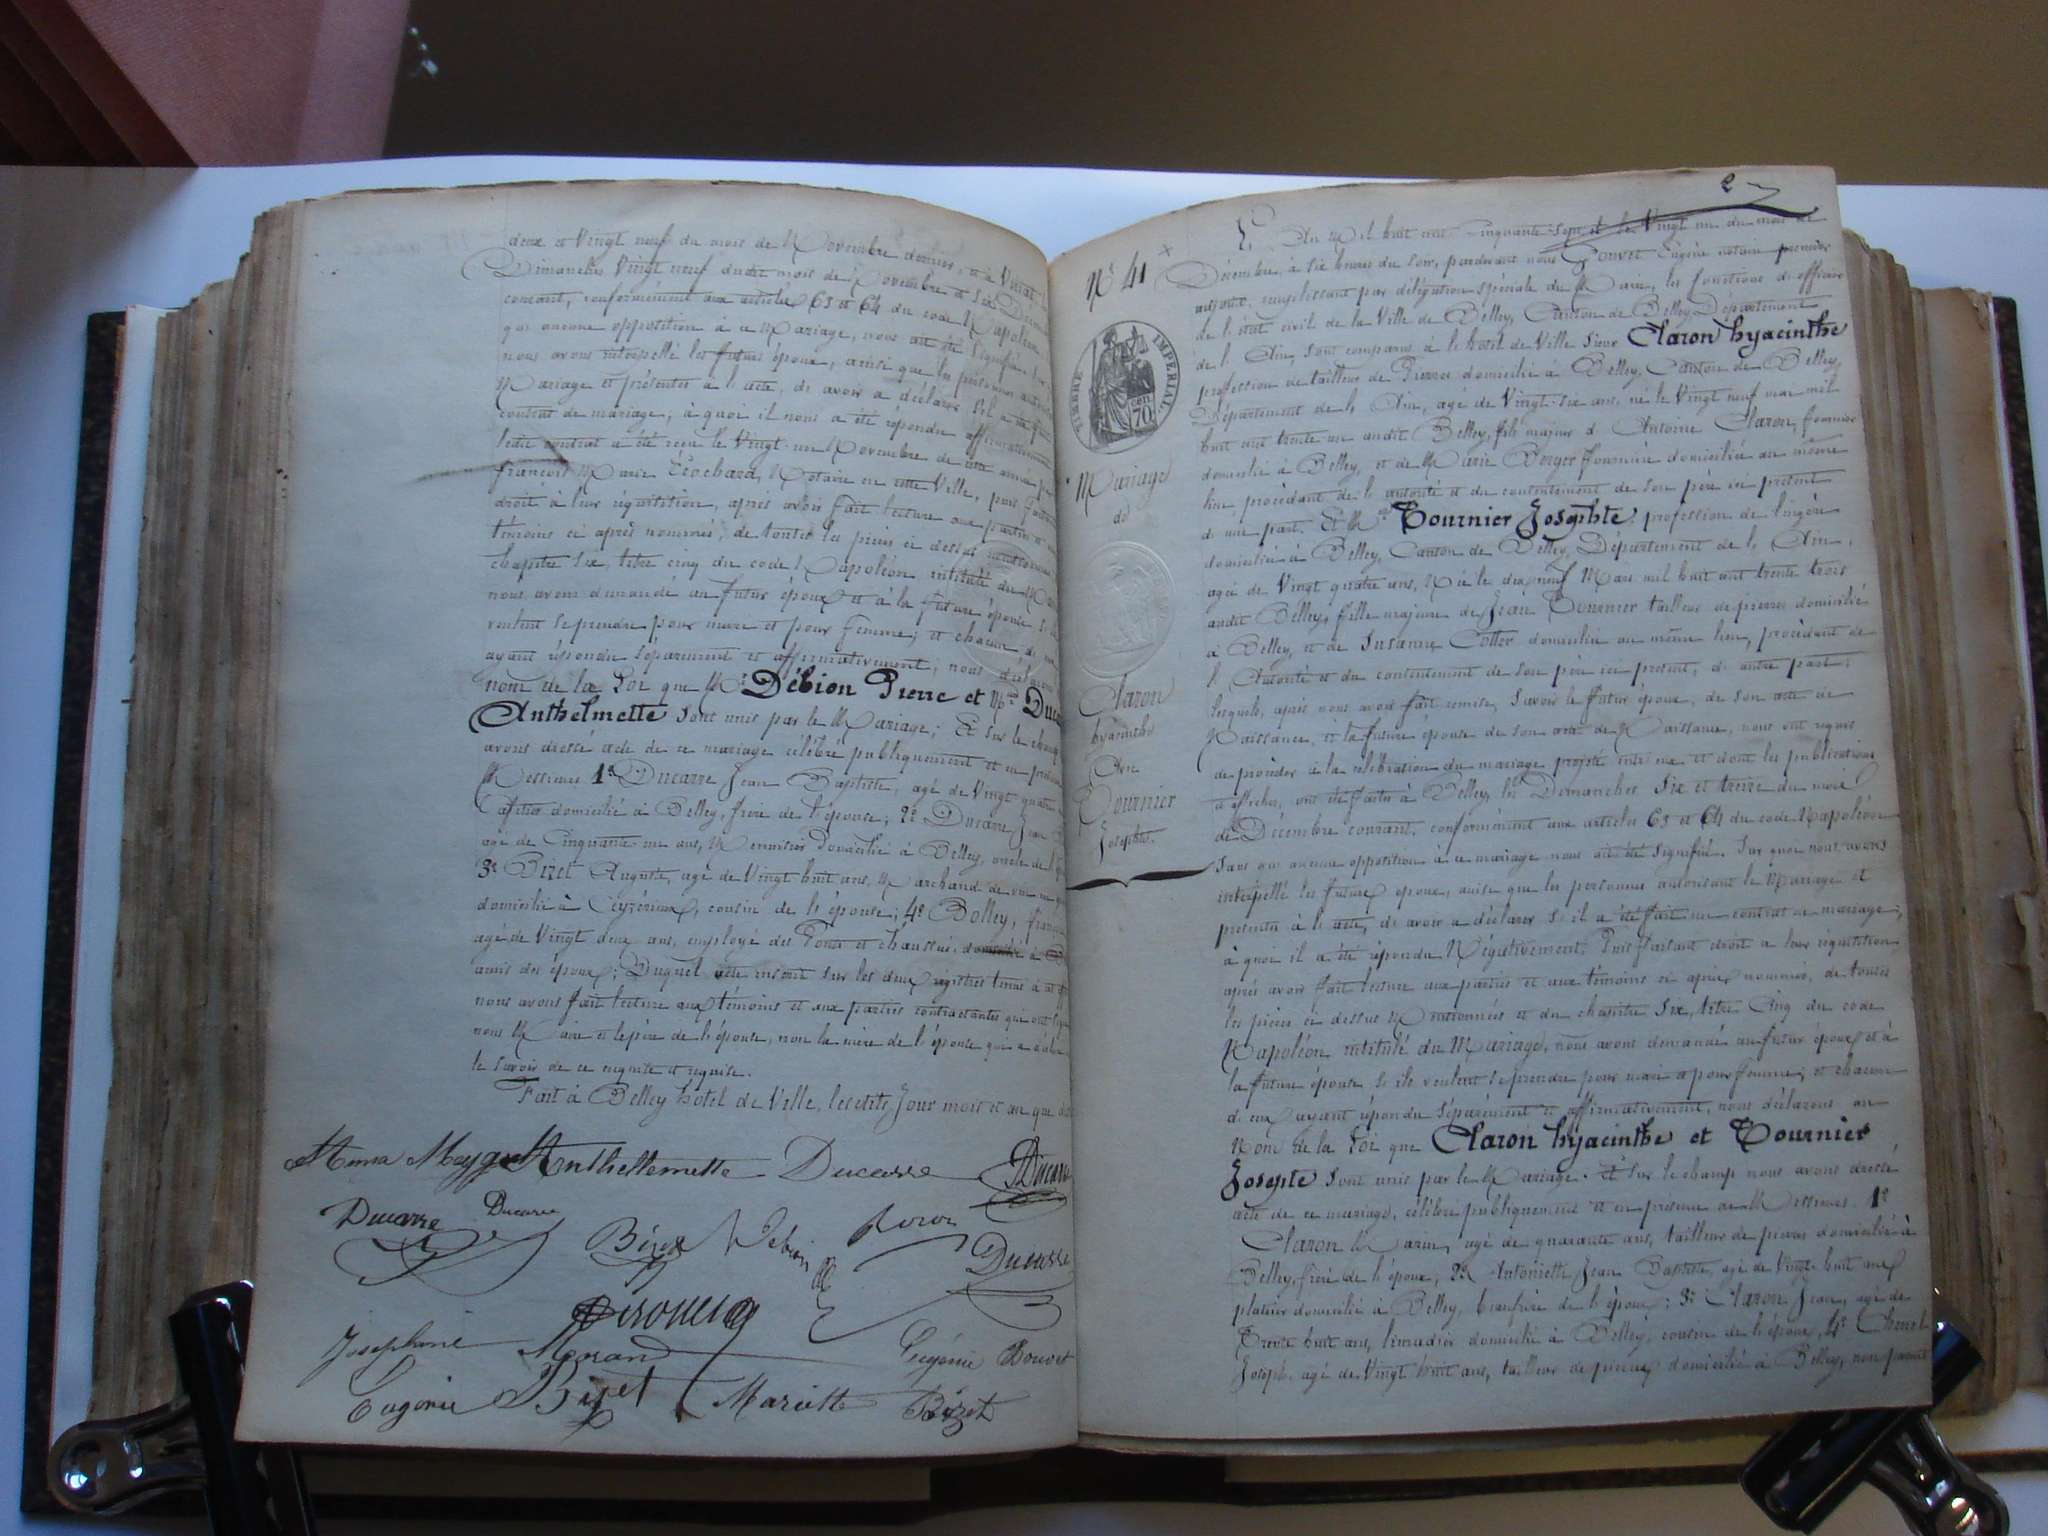 deux et Vingt neuf du mois de Novembre dernier, et à
Dimanches Vingt neuf dudit mois de Novembre et Six Décembre
courant, conformément aux articles 63 et 64 du code Napoléon
que aucune opposition à ce Mariage, nous ait été signifiée
nous avons interpellé les futurs époux, ainsi que les personnes autorisant
Mariage et présentes à l'acte, de avoir a déclarer s'il a été fait
contrat de mariage, à quoi il nous a été répondu affirmativement
ledit contrat a été reçu le Vingt un Novembre de cette année par
françois Marie Ecochard, Notaire en cette Ville, puis faisant
droit à leur réquisition, après avoir fait lecture aux parties et aux
témoins ci après nommés, de toutes les pièces ci dessus mentionnées
chapitre Six, titre cinq du code Napoléon intitulé du Mariage
nous avons demandé au futur époux et à la future épouse s'ils
veulent se prendre pour mari et pour femme; et chacun d'eux
ayant répondu séparément et affirmativement, nous déclarons
nom de la Loi que Mr Débion Pierre et Mlle Ducarre
Anthelmette sont unis par le Mariage; Et sur le champ
avons dressé acte de ce mariage célébré publiquement et en présence
Messieurs 1° Ducarre Jean Baptiste, agé de Vingt quatre
domicilié à Belley, frère de l'épouse; 2° Ducarre Jean
agé de Cinquante un ans, Menuisier domicilié à Belley, oncle de l'épouse
3° Bizet Auguste, agé de Vingt huit ans, Marchand de vin en gros
domicilié à Ceyzérieux, cousin de l'épouse; 4° Bolley, françois
agé de Vingt deux ans, employé des Ponts et chaussées, domicilié à
amis des époux; Duquel acte inscrit sur les deux registres tenus à cet effet
nous avons fait lecture aux témoins et aux parties contractantes qui ont signé
nous Maire et le père de l'épouse, non la mère de l'épouse qui a déclaré
le savoir de ce enquise et requise.
Fait à Belley hôtel de Ville, lesdits, Jour mois et an que
Anna Meyguet Anthellemette Ducarre Ducarre
Ducarre Ducarre Bizet Debion Ducarre
Josephine Morand Eugénie Bouvet
Eugénie Bizet Mariette Bizet
2
N° 41
TIMBRE IMPERIAL
70 cen
Mariage
de
Claron
hyacinthe
Avec
Tournier
Josephte.
L'An Mil huit cent cinquante sept et le Vingt un du mois de
Décembre à six heures du soir, pardevant nous Gouvet Eugène notaire premier
adjoint, remplissant par délégation spéciale du Maire, les fonctions d'officier
de l'état civil de la Ville de Belley, Canton de Belley Département
de l'Ain, sont comparus à l'hôtel de Ville Sieur Claron hyacinthe
profession de tailleur de Pierres domicilié à Belley, Canton de Belley,
Département de l'Ain, agé de Vingt-six ans, né le Vingt neuf mai mil
huit cent trente un audit Belley, fils majeur d'Antoine Claron, fournier
domicilié à Belley, et de Marie Berger fournière domiciliée au même
lieu procédant de l'autorité et du consentement de son père ici présent
d'une part. Et Mlle Tournier Josephte, profession de lingère
domiciliée à Belley, Canton de Belley, Département de l'Ain,
agée de Vingt quatre ans, Née le dix neuf Mars mil huit cent trente trois
audit Belley, fille majeure de Jean Tournier tailleur de pierres domicilié
à Belley, et de Susanne Cottet domiciliée au même lieu, procédant de
l'Autorité et du consentement de son père ici présent, d'autre part;
lesquels, après nous avoir fait remise, Savoir le futur époux, de son acte de
Naissance, et la future épouse de son acte de Naissance, nous ont requis
de procéder à la célébration du mariage projeté entre eux et dont les publications
et affiches, ont été faites à Belley, les Dimanches Six et treize du mois
de Décembre courant, conformément aux articles 63 et 64 du code Napoléon
Sans que aucune opposition à ce mariage nous ait été signifiée. Sur quoi nous avons
interpellé les futurs époux, ainsi que les personnes autorisant le Mariage et
présentes à l'acte, d'avoir a déclarer s'il a été fait un contrat de mariage,
à quoi il a été répondu Négativement. Puis faisant droit a leur réquisition
après avoir fait lecture aux parties et aux témoins ci après nommés, de toutes
les pièces ci dessus Mentionnées et du chapitre Six, titre Cinq du code
Napoléon intitulé du Mariage, nous avons demandé au futur époux et à
la future épouse si ils veulent se prendre pour mari et pour femme; et chacun
d'eux ayant répondu séparément et affirmativement, nous déclarons au
Nom de la Loi que Claron hyacinthe et Tournier
Josephte sont unis par le Mariage. Et sur le champ nous avons dressé
acte de ce mariage, célébré publiquement et en présence de Messieurs 1°
Claron Marin, agé de quarante ans, tailleur de pierres domicilié à
Belley, frère de l'époux, 2° Antoinette Jean Baptiste, agé de Vingt huit ans
platrier domicilié à Belley, beaufrère de l'époux; 3° Claron Jean, agé de
Trente huit ans, limonadier domicilié à Belley, cousin de l'époux, 4°
Joseph, agé de Vingt huit ans, tailleur de pierres domicilié à Belley, non parent